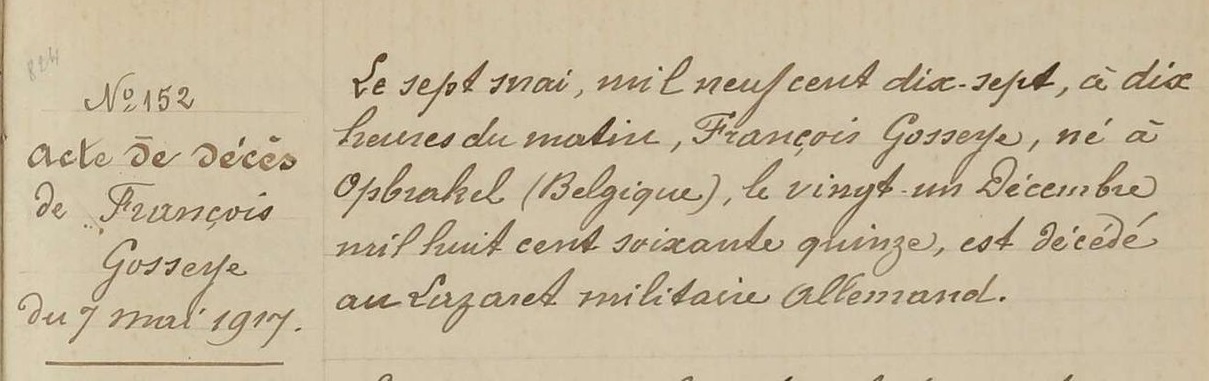 824
No 152
Acte de décès
de François
Gosseye
du 7 mai 1917.
Le sept mai, mil neuf cent dix-sept, à dix
heures du matin, François Gosseye, né à
Opbrakel (Belgique), le vingt-un Décembre
mil huit cent soixante quinze, est décédé
au Lazaret militaire Allemand.